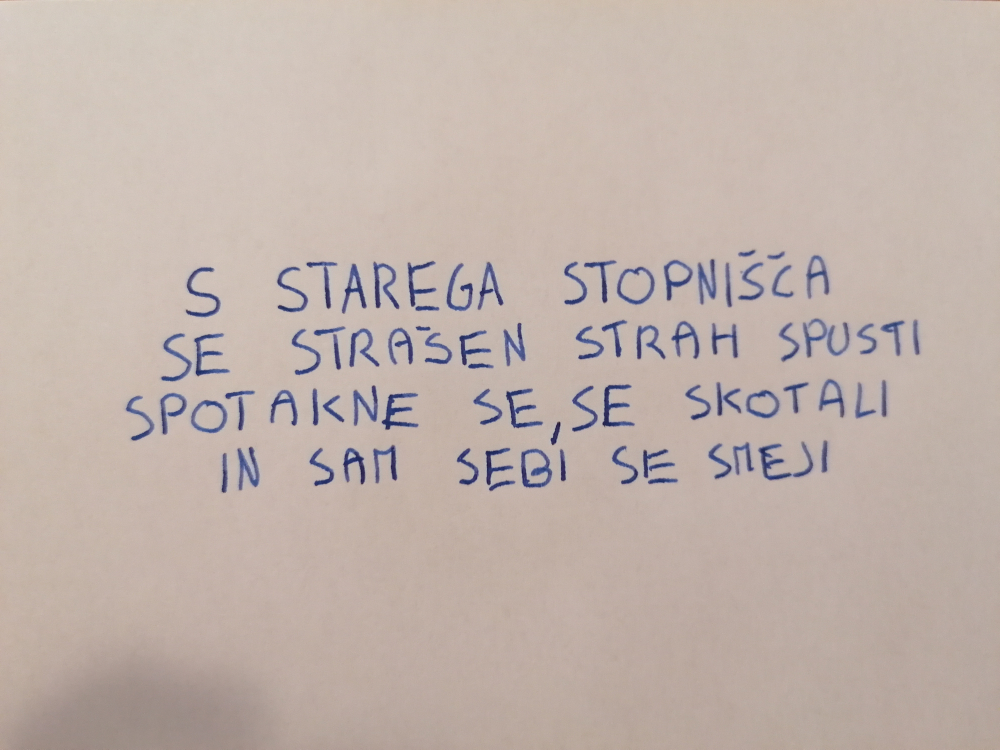 S STAREGA STOPNIŠČA
SE STRAŠEN STRAH SPUSTI
SPOTAKNE SE, SE SKOTALI
IN SAM SEBI SE SMEJI